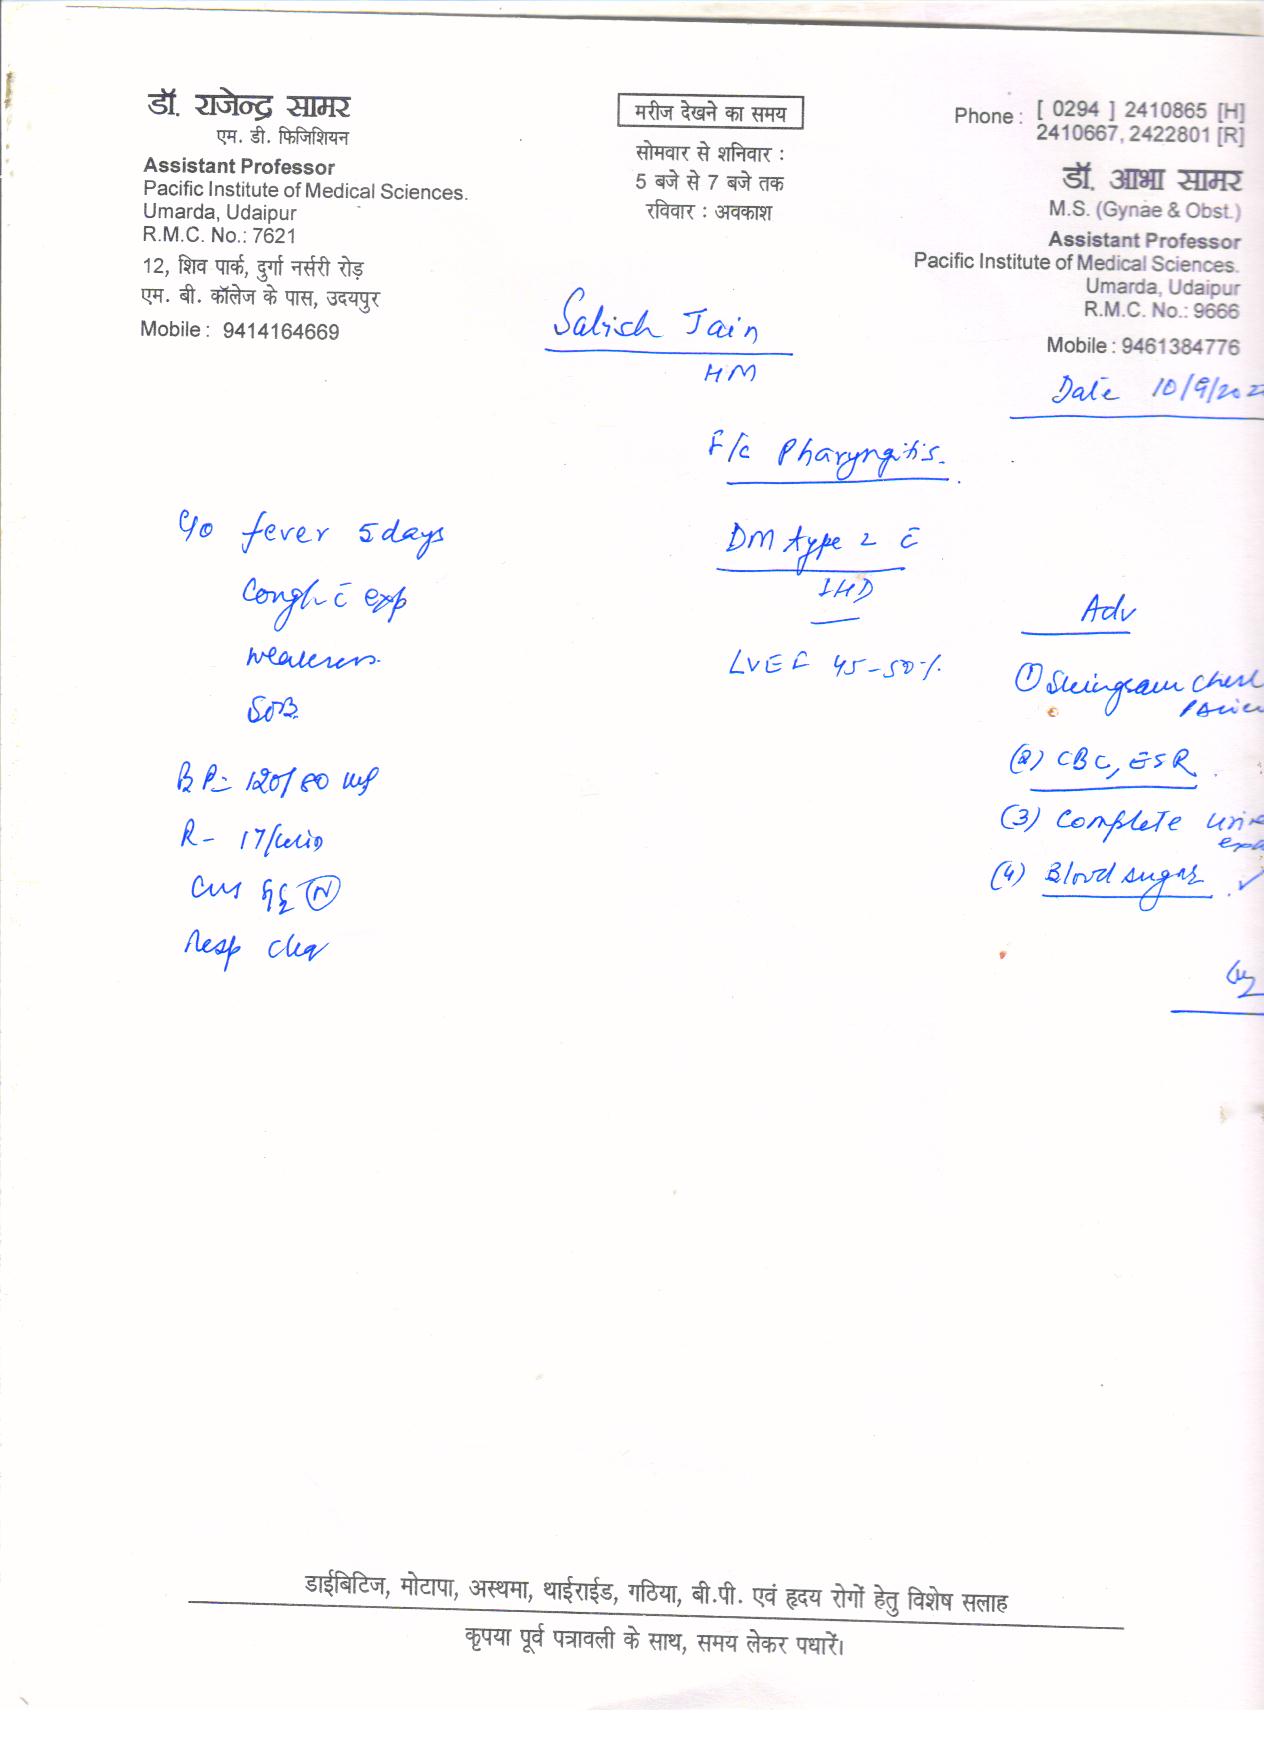 डॉ. राजेन्द्र सामर
एम. डी. फिजिशियन
Assistant Professor
Pacific Institute of Medical Sciences.
Umarda, Udaipur
R.M.C. No.: 7621
12, शिव पार्क, दुर्गा नर्सरी रोड़
एम. बी. कॉलेज के पास, उदयपुर
Mobile : 9414164669
मरीज देखने का समय
सोमवार से शनिवार :
5 बजे से 7 बजे तक
रविवार : अवकाश
Phone : [ 0294 ] 2410865 [H]
2410667, 2422801 [R]
डॉ. आभा सामर
M.S. (Gynae & Obst.)
Assistant Professor
Pacific Institute of Medical Sciences.
Umarda, Udaipur
R.M.C. No.: 9666
Mobile : 9461384776
Jain
HM
Date 10/9/202
F/c Pharyngitis.
c/o fever 5 days
Cough c̄ exp
weakness
SOB
BP = 120/80
R - 17/
CVS S1S2 (N)
Resp
DM type 2 c̄
IHD
LVEF 45-50%
Adv
(1) chest
(2) CBC, ESR
(3) Complete
(4) Blood sugar ✓
डाईबिटिज, मोटापा, अस्थमा, थाईराईड, गठिया, बी.पी. एवं हृदय रोगों हेतु विशेष सलाह
कृपया पूर्व पत्रावली के साथ, समय लेकर पधारें।